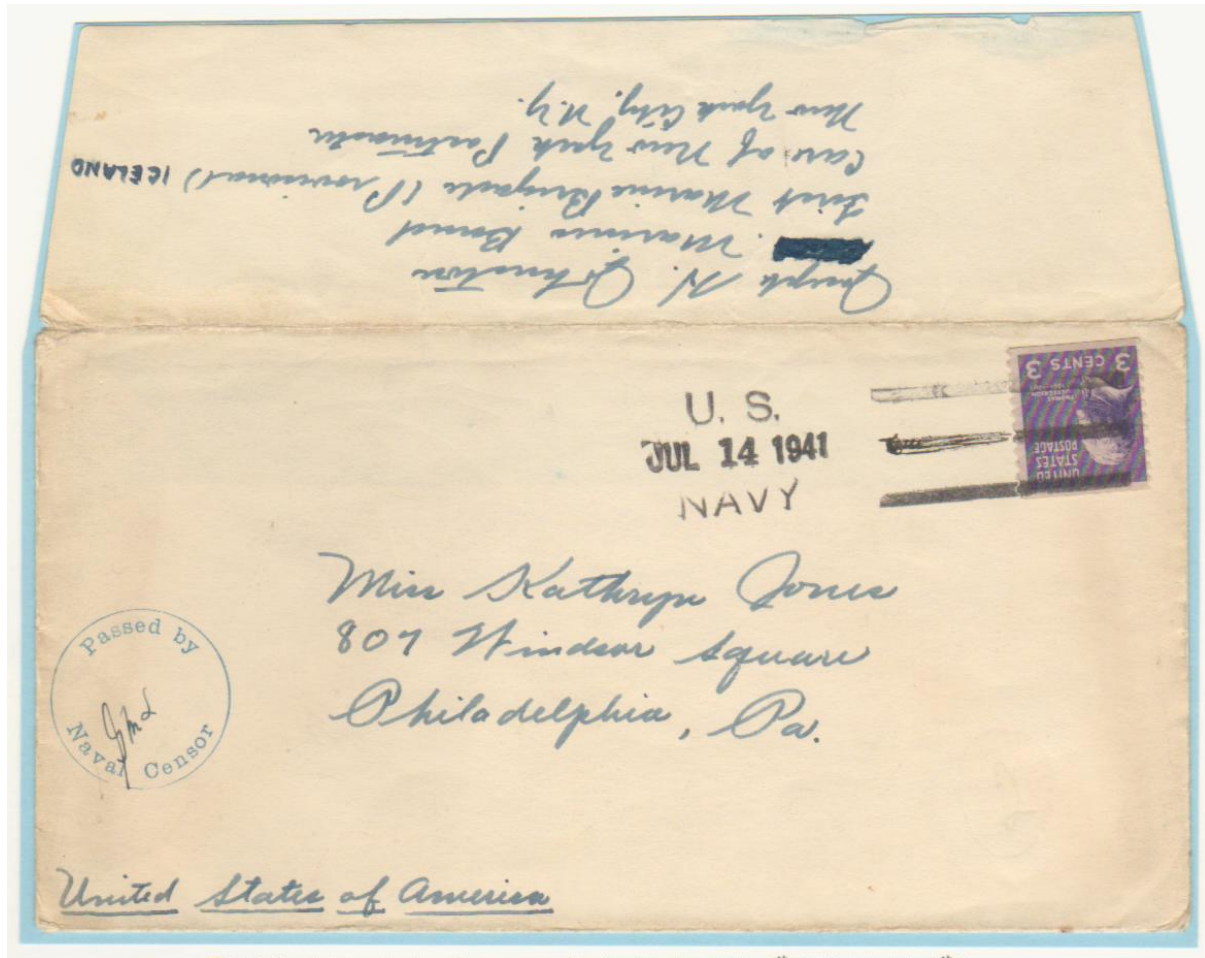 Joseph N. Johnston
Marines Band
First Marine Brigade (Provisional) ICELAND
Care of New York Postmaster
New York City, N.Y.
U. S.
JUL 14 1941
NAVY
3 CENTS 3
THOMAS JEFFERSON
UNITED
STATES
POSTAGE
Miss Kathryn Jones
807 Windsor Square
Philadelphia, Pa.
Passed by
Naval Censor
United States of America